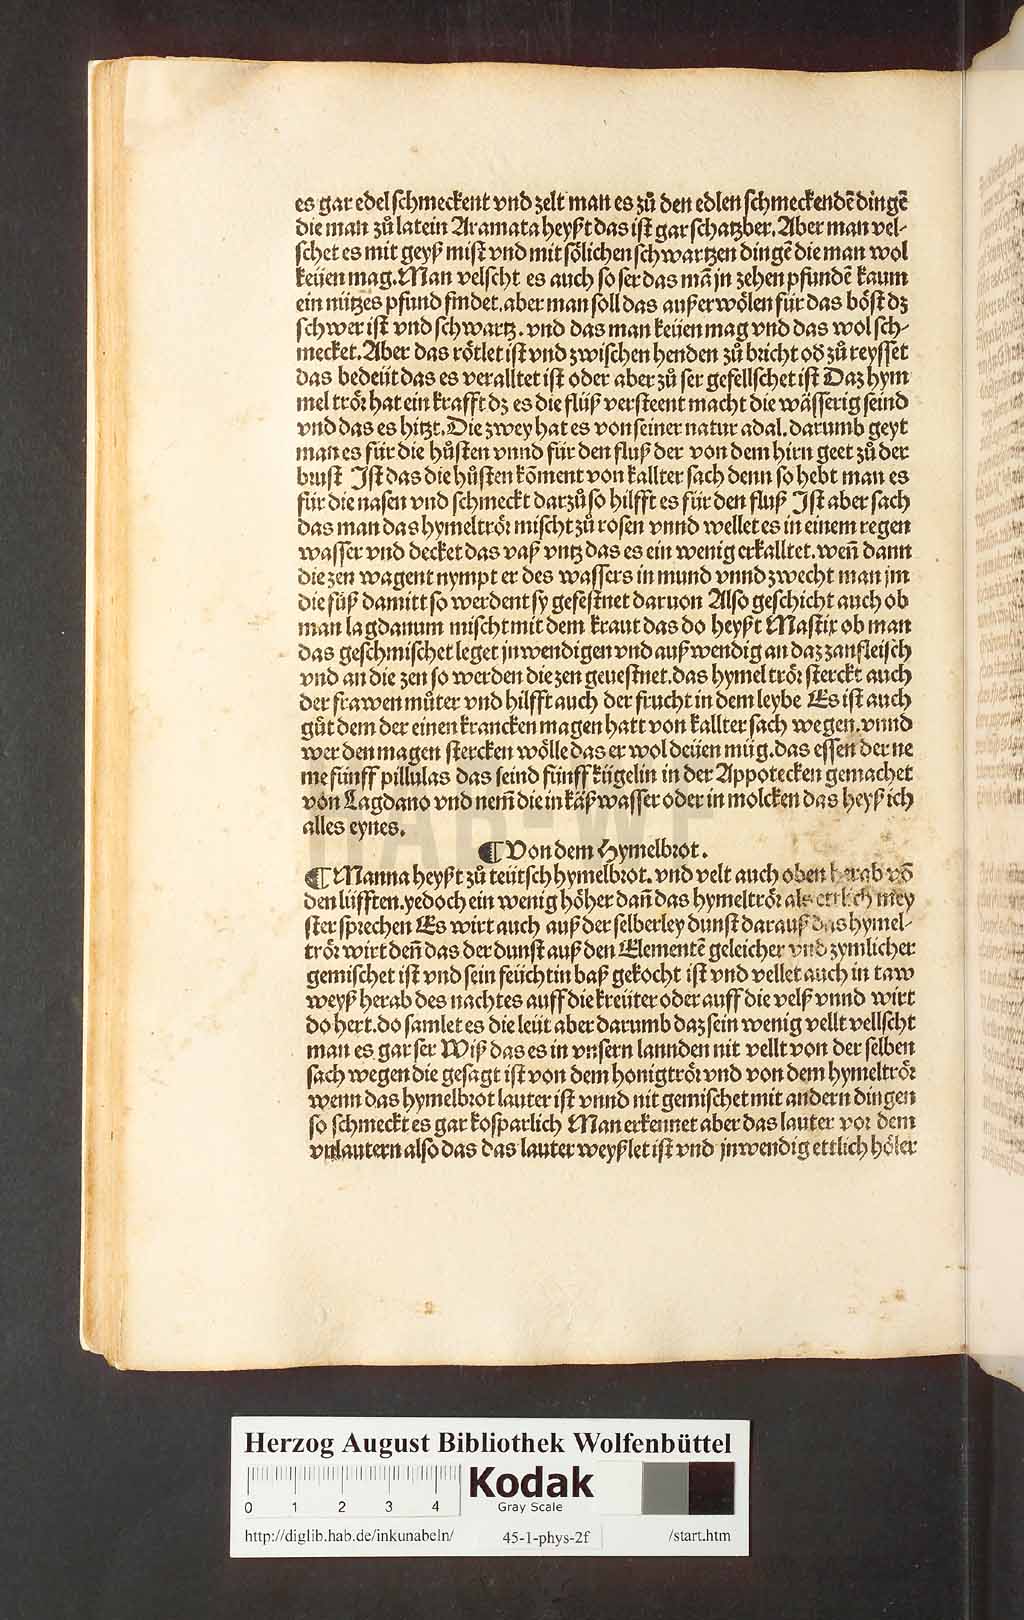 es gar edel schmeckent vnd zelt man es zů den edlen schmeckendē dingē
die man zů latein Aramata heyßt das ist gar schatzber. Aber man vel-
schet es mit geyß mist vnd mit sőlichen schwartzen dingē die man wol
keüen mag. Man velscht es auch so ser das mā jn zehen pfundē kaum
ein nützes pfund findet. aber man soll das außerwőlen für das bőst dz
schwer ist vnd schwartz. vnd das man keüen mag vnd das wol sch-
mecket. Aber das rőtlet ist vnd zwischen henden zů bricht od zů reysset
das bedeüt das es veralltet ist oder aber zů ser gefellschet ist Daz hym
mel trőr hat ein krafft dz es die flüß versteent macht die wässerig seind
vnd das es hitzt. Die zwey hat es von seiner natur adal. darumb geyt
man es für die hůsten vnnd für den fluß der von dem hirn geet zů der
brust Ist das die hůsten kōment von kallter sach denn so hebt man es
für die nasen vnd schmeckt darzů so hilfft es für den fluß Ist aber sach
das man das hymeltrőr mischt zů rosen vnnd wellet es in einem regen
wasser vnd decket das vaß vntz das es ein wenig erkalltet. weñ dann
die zen wagent nympt er des wassers in mund vnnd zwecht man jm
die füß damitt so werdent sy gefestnet daruon Also geschicht auch ob
man lagdanum mischt mit dem kraut das do heyßt Mastix ob man
das geschmischet leget jnwendigen vnd außwendig an daz zanfleisch
vnd an die zen so werden die zen geuestnet. das hymel trőr sterckt auch
der frawen můter vnd hilfft auch der frucht in dem leybe Es ist auch
gůt dem der einen krancken magen hatt von kallter sach wegen. vnnd
wer den magen stercken wőlle das er wol deüen müg. das essen der ne
me fünff pillulas das seind fünff kügelin in der Appotecken gemachet
von Lagdano vnd nem̃ die in käßwasser oder in molcken das heyß ich
alles eynes.
¶ Von dem Hymelbrot.
¶ Manna heyßt zů teütsch hymelbrot. vnd velt auch oben herab vō
den lüfften. yedoch ein wenig hőher dañ das hymeltrőr als ettlich mey
ster sprechen Es wirt auch auß der selberley dunst darauß das hymel-
trőr wirt deñ das der dunst auß den Elementē geleicher vnd zymlicher
gemischet ist vnd sein feüchtin baß gekocht ist vnd vellet auch in taw
weyß herab des nachtes auff die kreüter oder auff die velß vnnd wirt
do hert. do samlet es die leüt aber darumb daz sein wenig vellt vellscht
man es gar ser Wiß das es in vnsern lannden nit vellt von der selben
sach wegen die gesagt ist von dem honigtrőr vnd von dem hymeltrőr
wenn das hymelbrot lauter ist vnnd nit gemischet mit andern dingen
so schmeckt es gar kosparlich Man erkennet aber das lauter vor dem
vnlautern also das das lauter weyßlet ist vnd jnwendig ettlich hőler
HAB-WF
Herzog August Bibliothek Wolfenbüttel
0 1 2 3 4
Kodak
Gray Scale
http://diglib.hab.de/inkunabeln/ 45-1-phys-2f /start.htm